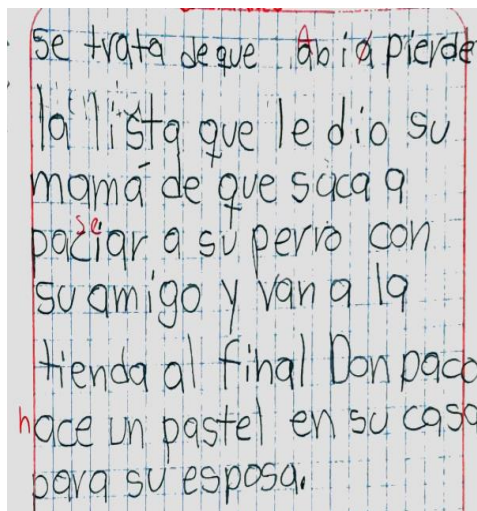 Se trata de que Abia pierde
la lista que le dio su
mamá de que saca a
paciar a su perro con
su amigo y van a la
tienda al final Don paco
hace un pastel en su casa
para su esposa.